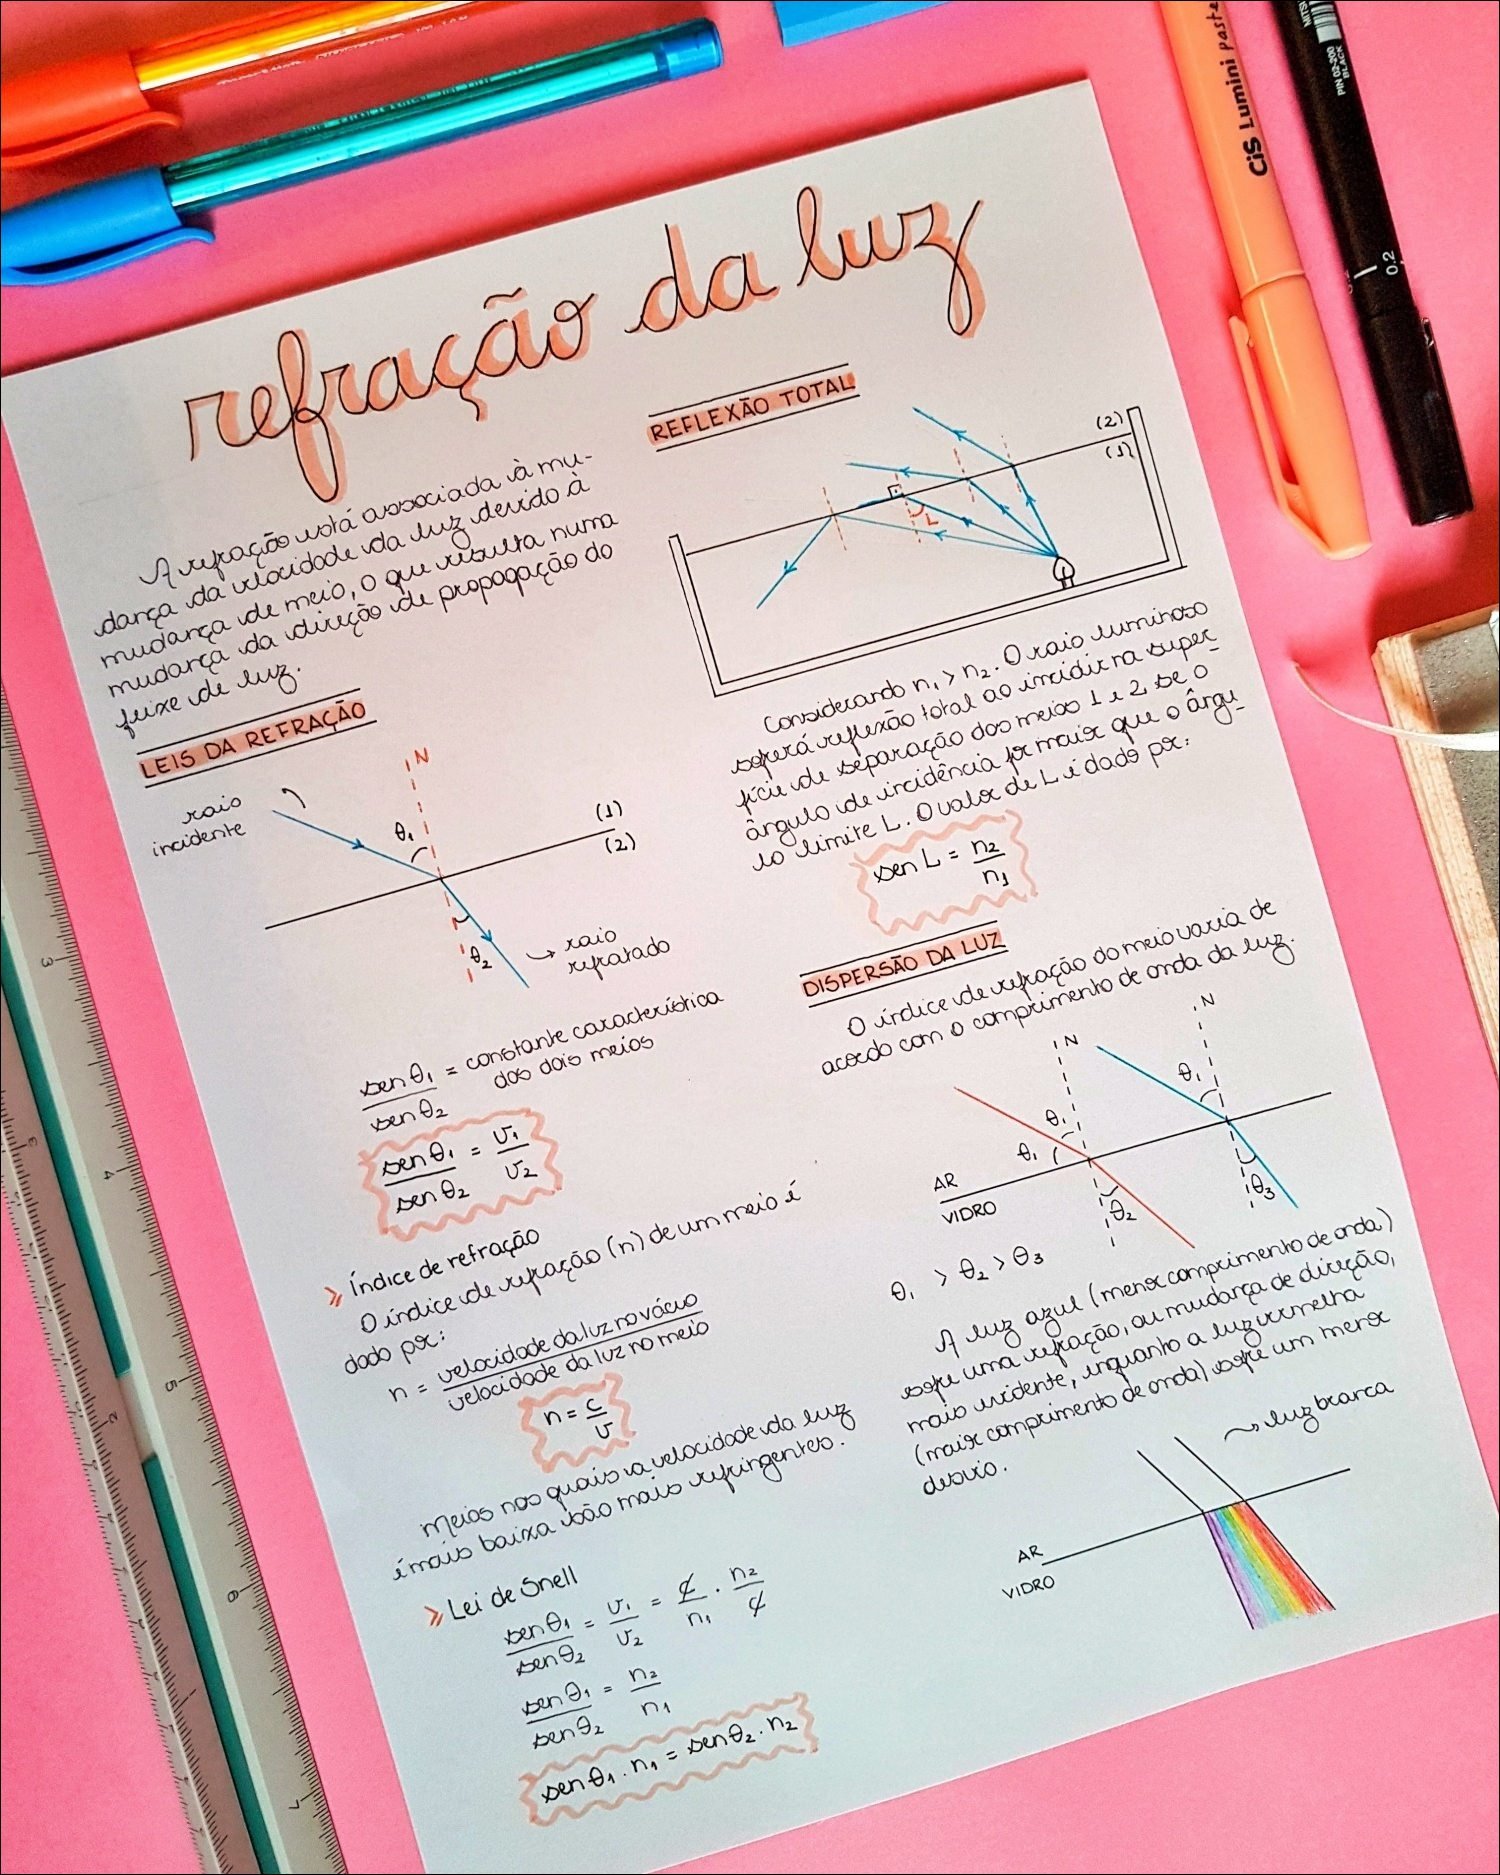 refração da luz
A refração está associada à mu-
dança da velocidade da luz devido à
mudança de meio, o que resulta numa
mudança da direção de propagação do
feixe de luz.
LEIS DA REFRAÇÃO
N
raio
incidente
θ₁
(1)
(2)
θ₂
raio
refratado
sen θ₁ / sen θ₂ = constante característica
dos dois meios
sen θ₁ / sen θ₂ = v₁ / v₂
» Índice de refração
O índice de refração (n) de um meio é
dado por:
n = velocidade da luz no vácuo / velocidade da luz no meio
n = c / v
Meios nos quais a velocidade da luz
é mais baixa são mais refringentes.
» Lei de Snell
sen θ₁ / sen θ₂ = v₁ / v₂ = c / n₁ . n₂ / c
sen θ₁ / sen θ₂ = n₂ / n₁
sen θ₁ . n₁ = sen θ₂ . n₂
REFLEXÃO TOTAL
(2)
(1)
L
Considerando n₁ > n₂. O raio luminoso
sofrerá reflexão total ao incidir na super-
fície de separação dos meios 1 e 2, se o
ângulo de incidência for maior que o ângu-
lo limite L. O valor de L é dado por:
sen L = n₂ / n₁
DISPERSÃO DA LUZ
O índice de refração do meio varia de
acordo com o comprimento de onda da luz.
N
N
θ₁
θ₁
θ₁
AR
VIDRO
θ₂
θ₃
θ₁ > θ₂ > θ₃
A luz azul (menor comprimento de onda)
sofre uma refração, ou mudança de direção,
mais evidente, enquanto a luz vermelha
(maior comprimento de onda) sofre um menor
desvio.
luz branca
AR
VIDRO
CiS Lumini Paste
MITSU
PIN 02-200
BLACK
0.2
3
4
5
6
7